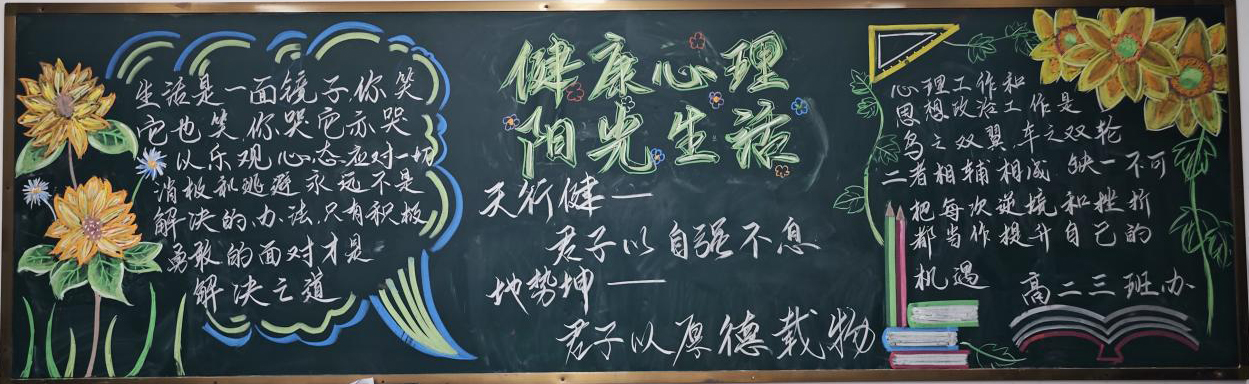 生活是一面镜子,你笑
它也笑,你哭它亦哭
以乐观心态应对一切
消极和逃避永远不是
解决的办法,只有积极
勇敢的面对才是
解决之道
健康心理
阳光生活
天行健——
君子以自强不息
地势坤——
君子以厚德载物
心理工作和
思想政治工作是
鸟之双翼,车之双轮
二者相辅相成 缺一不可
把每次逆境和挫折
都当作提升自己的
机遇
高二三班办